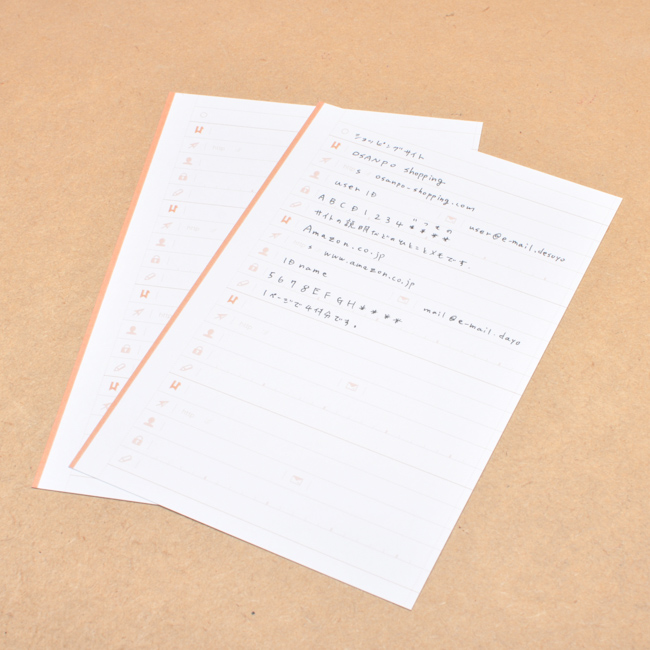 ショッピングサイト
OSANPO shopping
s osanpo-shopping.com
user ID user@e-mail.desuyo
A B C D 1 2 3 4 * * * *
サイトの説明などのひとことメモです。
Amazon.co.jp
s www.amazon.co.jp
ID name mail@e-mail.dayo
5 6 7 8 E F G H * * * *
1ページで4件分です。